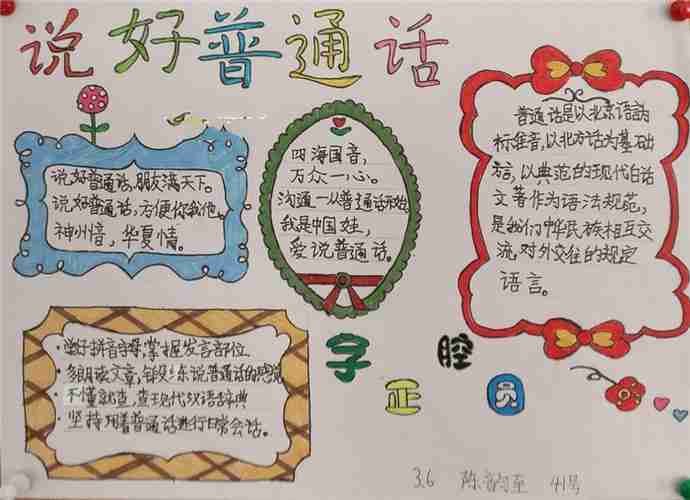 说好普通话
说好普通话，朋友满天下。
说好普通话，方便你我他。
神州音，华夏情。
四海国音，
万众一心。
沟通一从普通话开始
我是中国娃，
爱说普通话。
普通话是以北京语音为
标准音，以北方话为基础
方言，以典范的现代白话
文著作为语法规范，
是我们中华民族相互交
流，对外交往的规定
语言。
学好拼音字母，掌握发音部位
多朗读文章，锻炼说普通话的感觉
不懂就查，查现代汉语辞典
坚持用普通话进行日常会话。
字正腔圆
3.6 陈 至 41号